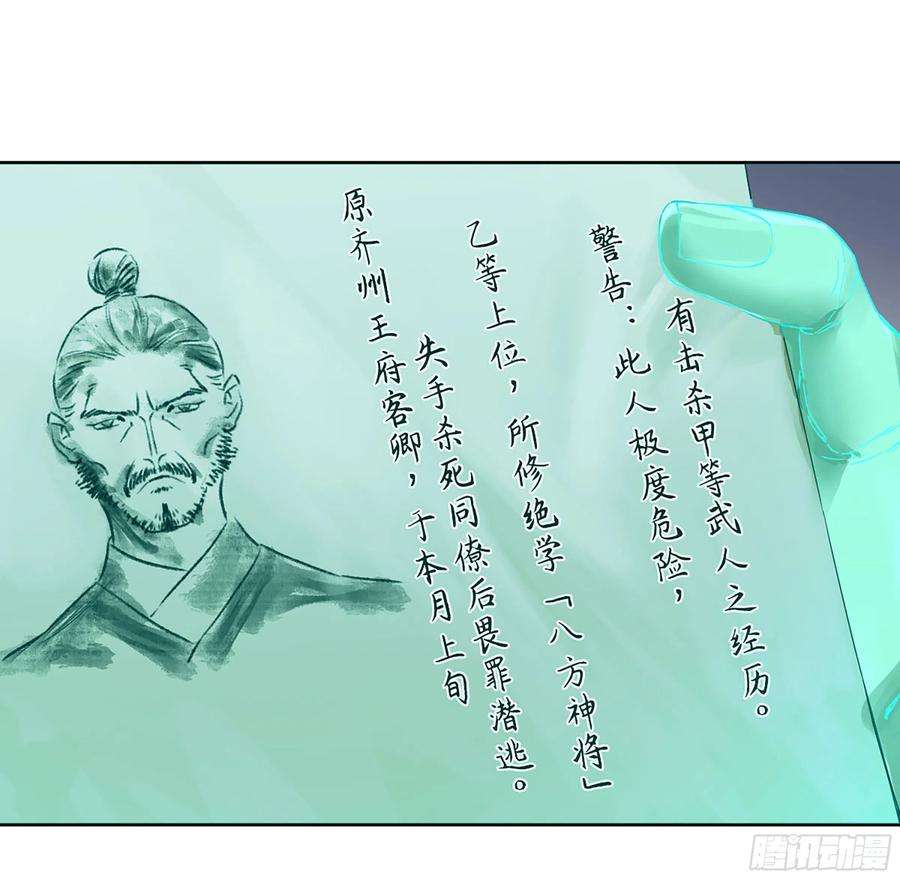 原齐州王府客卿，于本月上旬
失手杀死同僚后畏罪潜逃。
乙等上位，所修绝学「八方神将」
警告：此人极度危险，
有击杀甲等武人之经历。
腾讯动漫